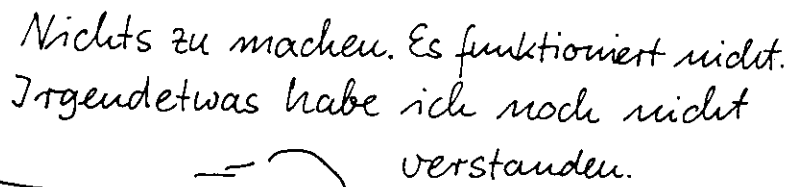 Nichts zu machen. Es funktioniert nicht.
Irgendetwas habe ich noch nicht
verstanden.